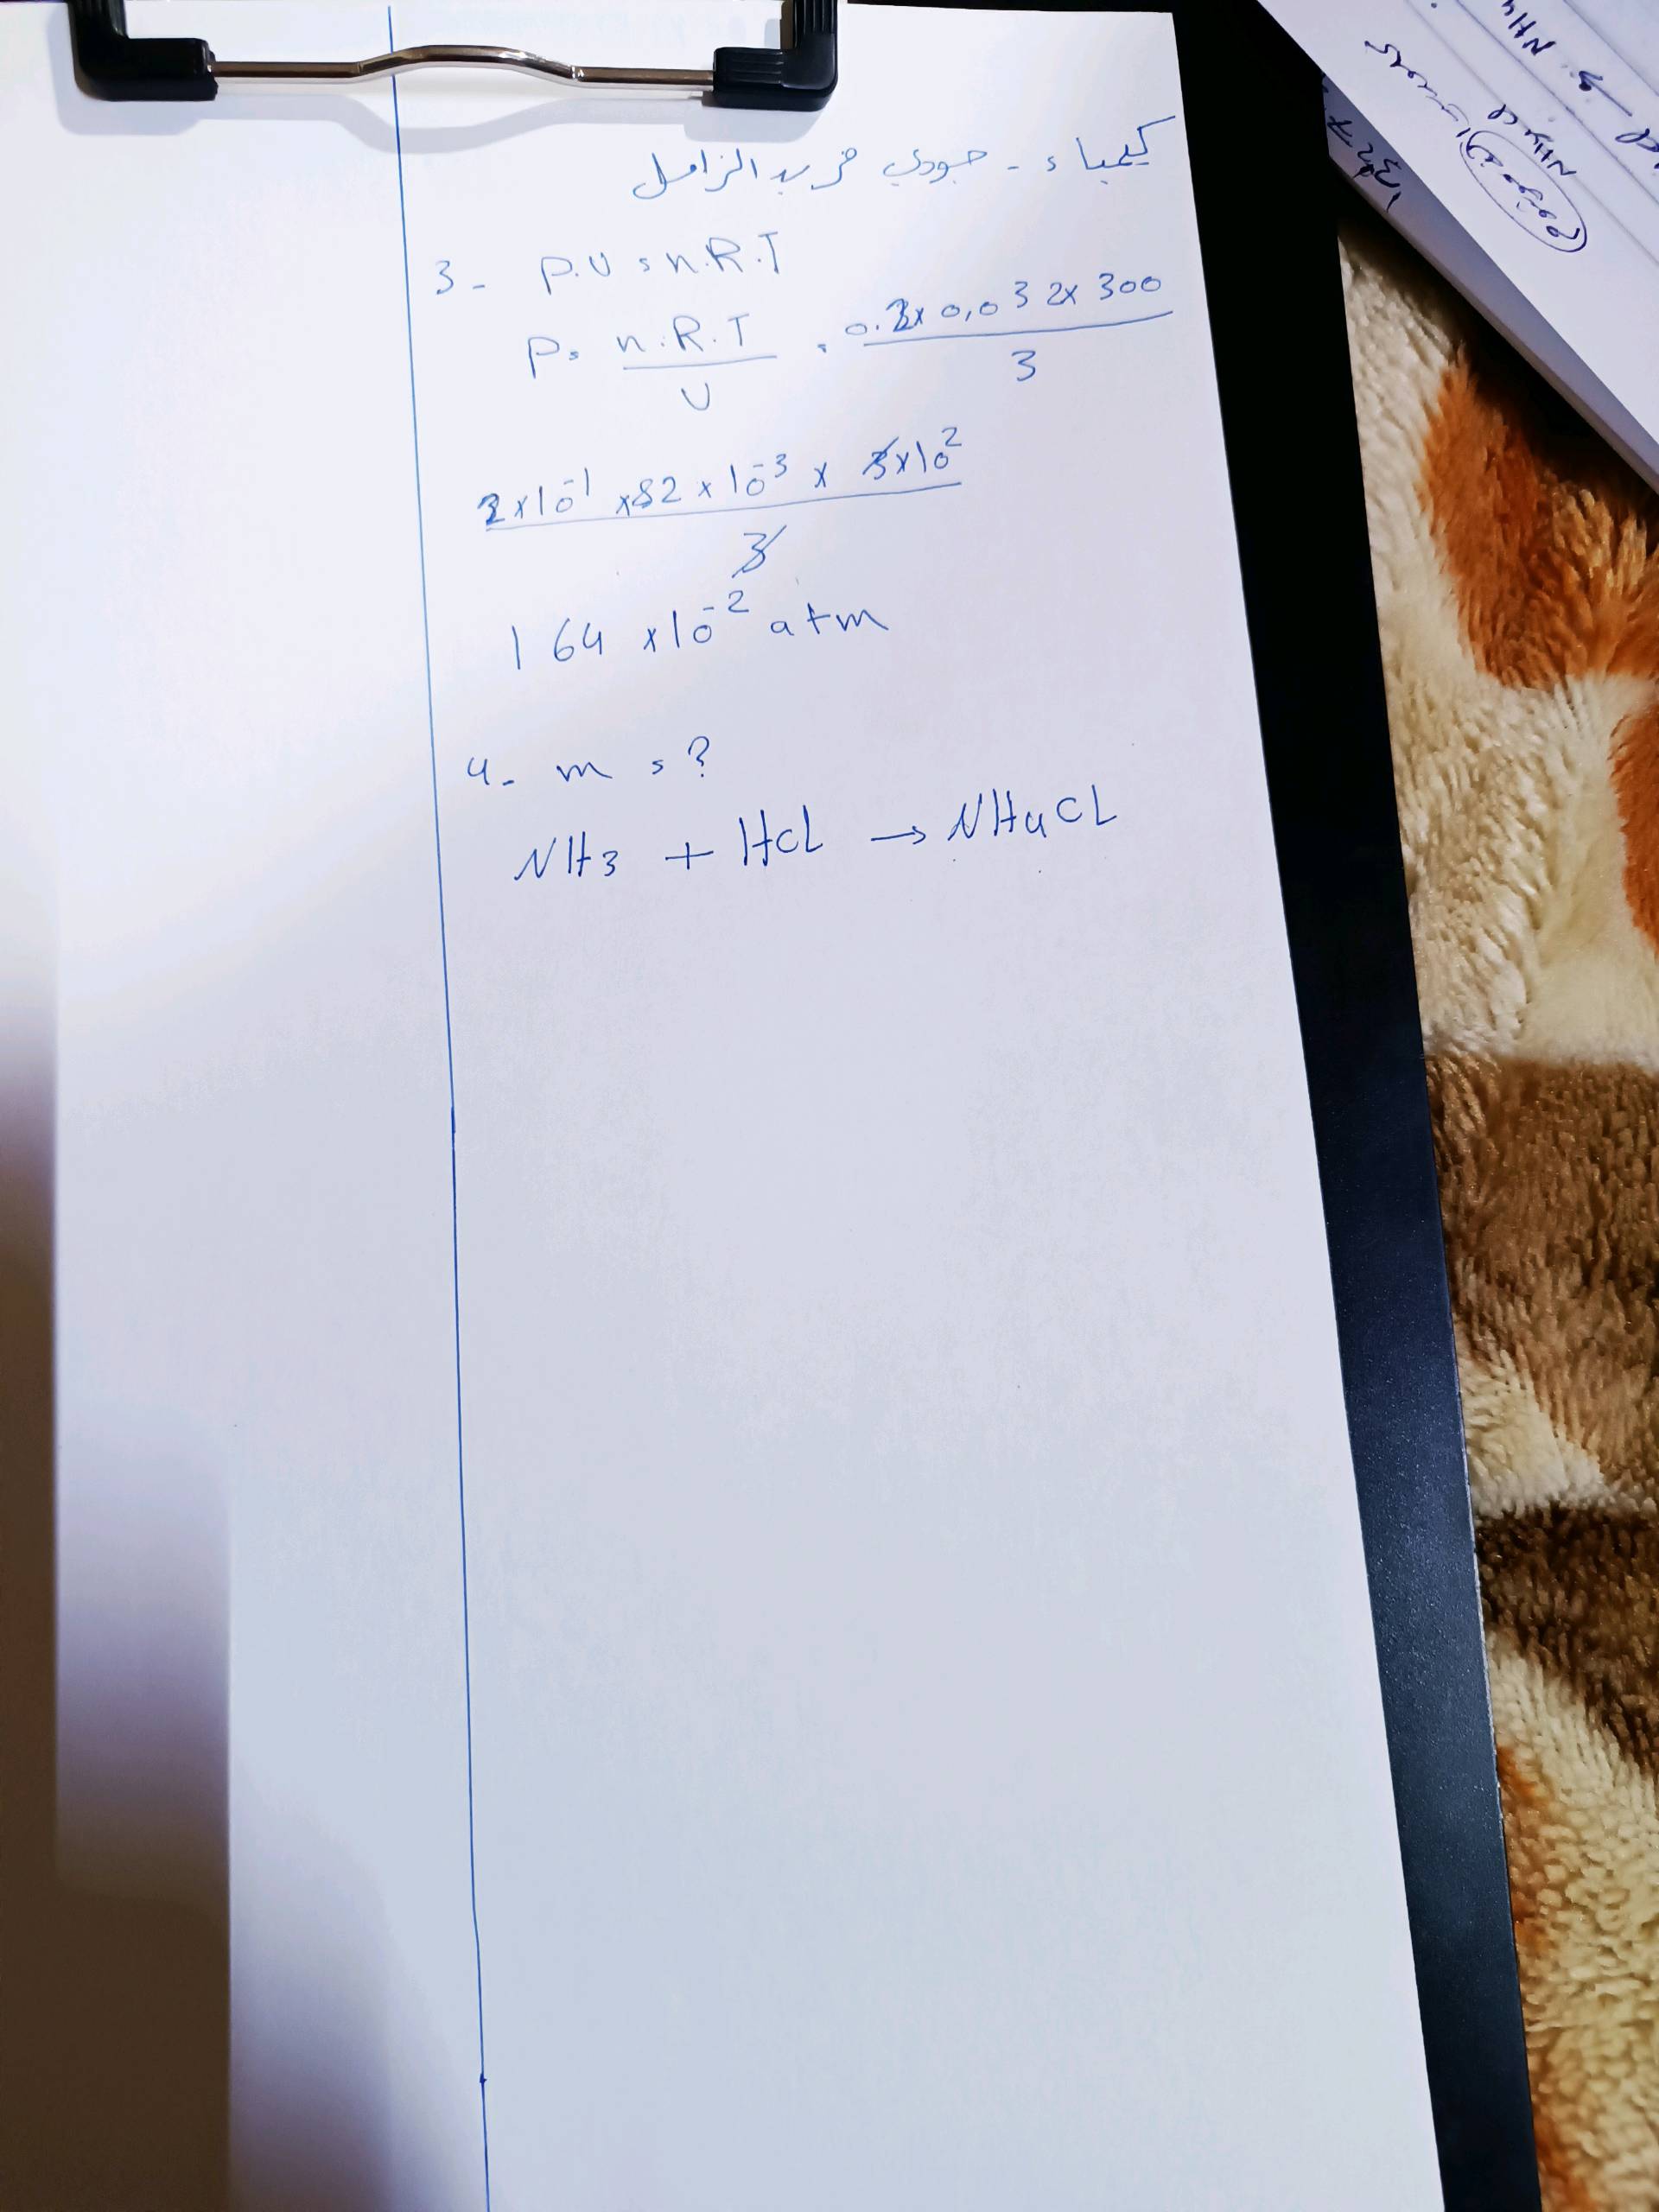 كيمياء - جودي فريد الزامل
3 - P.V = n.R.T
P = n.R.T / V = 0.2 x 0,032 x 300 / 3
2x10^-1 x 82 x 10^-3 x 3x10^2 / 3
164 x10^-2 atm
4- m = ?
NH3 + HCL → NH4CL
NH4
NH4Cl